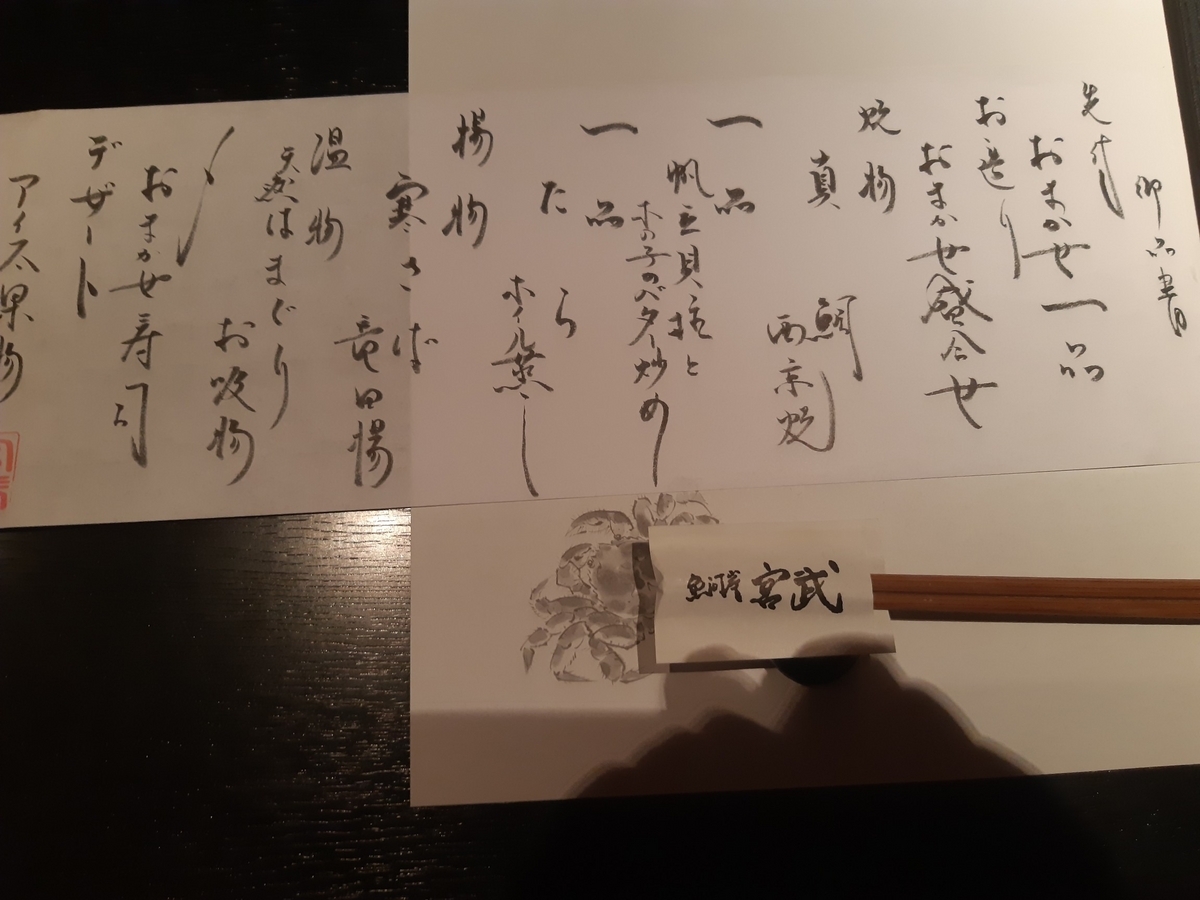 御品書
先付
おまかせ一品
お造り
おまかせ盛合せ
焼物
真鯛
西京焼
一品
帆立貝柱と
木の子のバター炒め
一品
たら
ホイル蒸し
揚物
寒さば
竜田揚
温物
天然はまぐり
お吸物
〆
おまかせ寿司
デザート
アイス果物
宮武